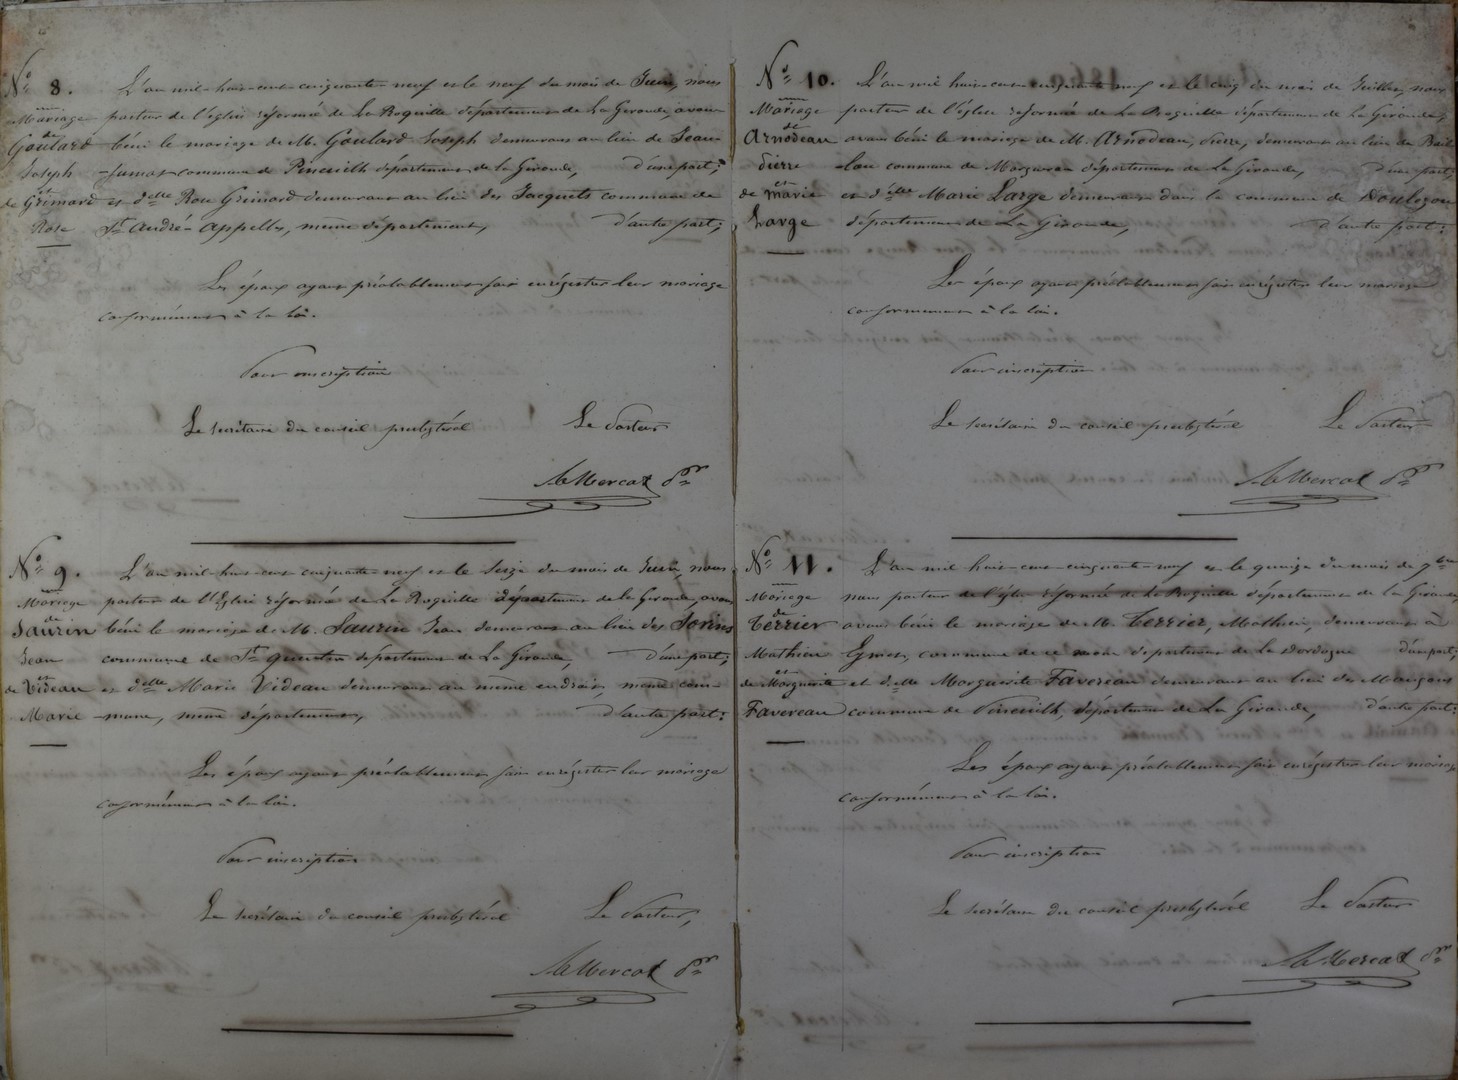 N° 8.
Mariage
de
Goulard
Joseph
et
de Grimard
Rose
L'an mil-huit-cent-cinquante-neuf et le neuf du mois de Juin, nous
pasteur de l'église réformée de La Roquille département de La Gironde, avons
béni le mariage de M. Goulard Joseph demeurant au lieu de Jean
commune de Pineuilh département de la Gironde, d'une part;
et d'elle Rose Grimard demeurant au lieu des Jacquets commune de
St André & Appelles, même département, d'autre part;
Les époux ayant préalablement fait enrégistrer leur mariage
conformément à la loi.
Pour inscription
Le secrétaire du conseil presbytéral Le Pasteur
N° 9.
Mariage
de
Saurin
Jean
et
de Videau
Marie
L'an mil-huit-cent-cinquante-neuf et le seize du mois de Juin, nous
pasteur de l'Eglise réformée de La Roquille département de la Gironde, avons
béni le mariage de M. Saurin Jean demeurant au lieu des
commune de St Quentin département de La Gironde, d'une part;
et d'elle Marie Videau demeurant au même endroit, même com-
-mune, même département, d'autre part:
Les époux ayant préalablement fait enrégistrer leur mariage
conformément à la loi.
Pour inscription
Le secrétaire du conseil presbytéral Le Pasteur,
N° 10.
Mariage
de
Arnodeau
Pierre
et
de Marie
Large
L'an mil huit-cent-cinquante neuf et le cinq du mois de Juillet, nous
pasteur de l'église réformée de La Roquille département de La Gironde,
avons béni le mariage de M. Arnodeau, Pierre, demeurant au lieu de
commune de Margueron département de La Gironde, d'une part;
et d'elle Marie Large demeurant dans la commune de Doulezon
département de La Gironde, d'autre part;
Les époux ayant préalablement fait enrégistrer leur mariage
conformément à la loi.
Pour inscription
Le secrétaire du conseil presbytéral Le Pasteur
N° 11.
Mariage
de
Terrier
Mathieu
et
de Marguerite
Favereau
L'an mil huit-cent-cinquante-neuf et le quinze du mois de 7bre
nous pasteur de l'église réformée de La Roquille département de la Gironde,
avons béni le mariage de M. Terrier, Mathieu, demeurant à
commune de ce nom département de la Dordogne d'une part;
et d'elle Marguerite Favereau demeurant au lieu des
commune de Pineuilh, département de La Gironde, d'autre part:
Les époux ayant préalablement fait enrégistrer leur mariage
conformément à la loi.
Pour inscription
Le secrétaire du conseil presbytéral Le Pasteur